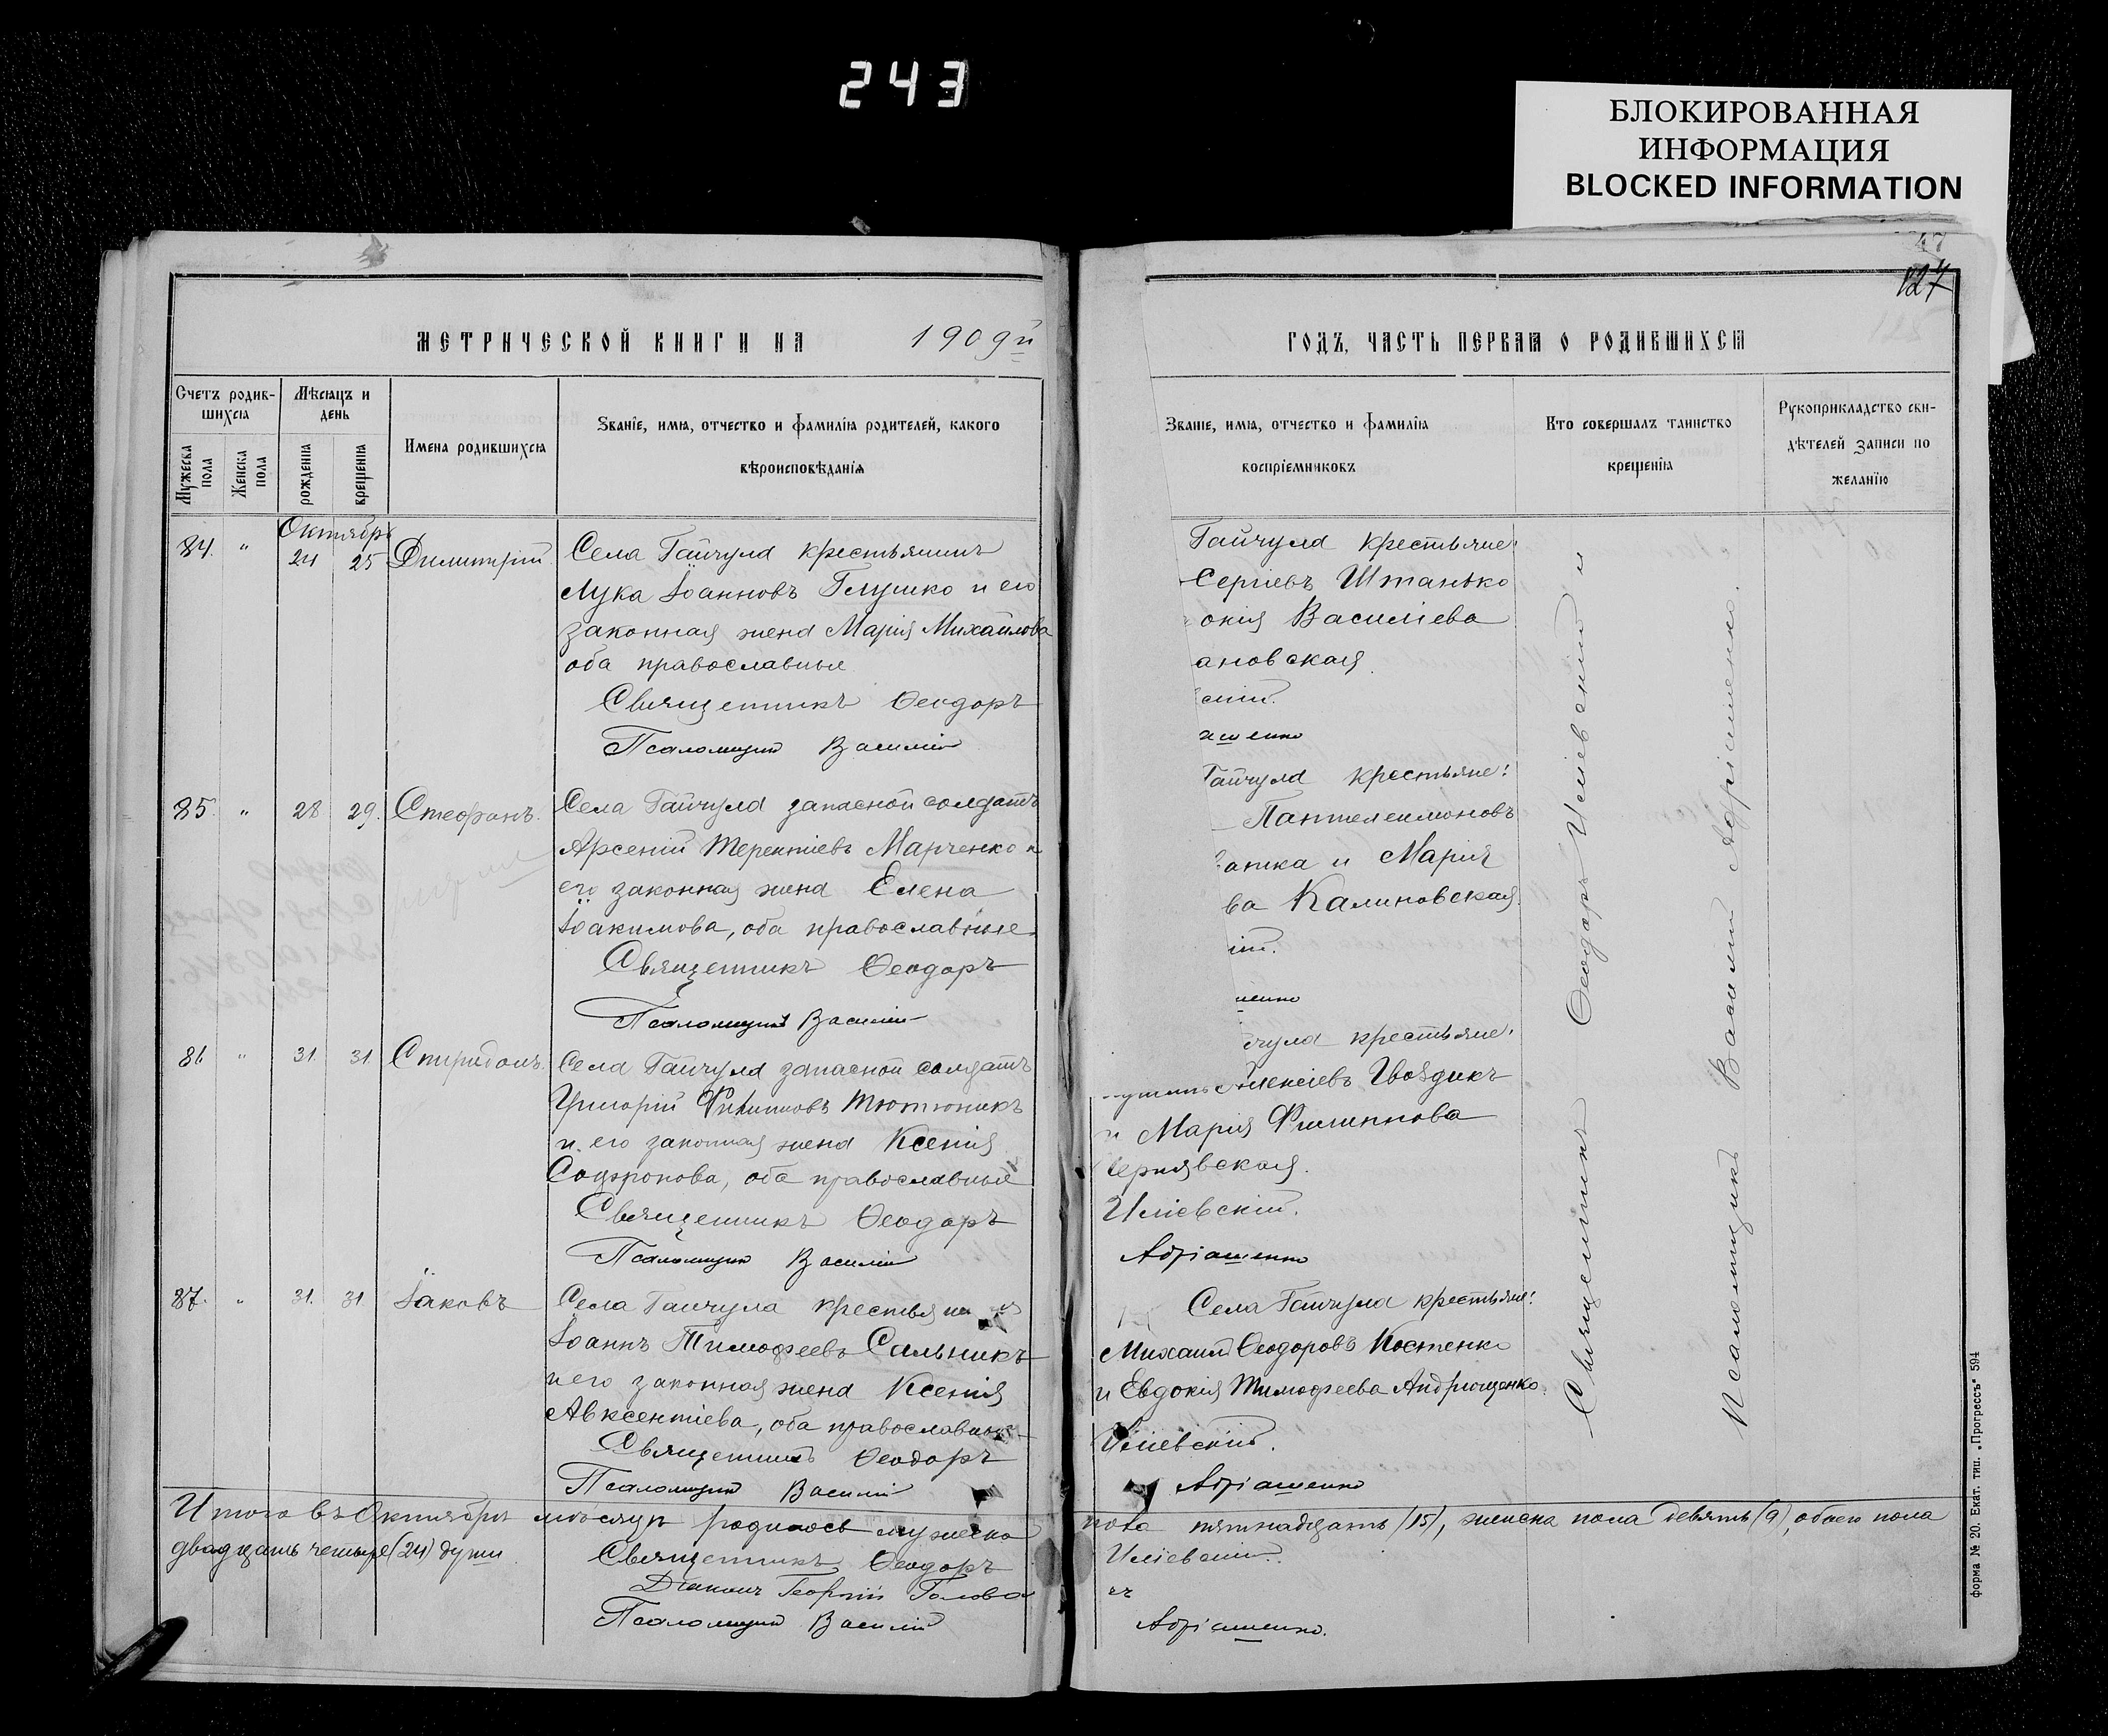 243
БЛОКИРОВАННАЯ
ИНФОРМАЦИЯ
BLOCKED INFORMATION
47
127
МЕТРИЧЕСКОЙ КНИГИ НА 1909й
Счетъ родив-
шихся
Мѣсяцъ и
день
Мужеска
пола
Женска
пола
рожденія
крещенія
Имена родившихся
Званіе, имя, отчество и фамилія родителей, какого
вѣроисповѣданія
Октябрь
84. " 24 25 Димитрій
Села Гайчула крестьянинъ
Лука Іоанновъ Глушко и его
законная жена Марія Михайлова
оба православные
Священникъ Ѳеодоръ
Псаломщикъ Василій
85. " 28 29. Стефанъ.
Села Гайчула запасной солдатъ
Арсеній Терентіевъ Марченко и
его законная жена Елена
Іоакимова, оба православные.
Священникъ Ѳеодоръ
Псаломщикъ Василій
86 " 31 31 Спиридонъ.
Села Гайчула запасной солдатъ
Григорій Филипповъ Тютюникъ
и его законная жена Ксенія
Софронова, оба православные
Священникъ Ѳеодоръ
Псаломщикъ Василій
87. " 31. 31 Іаковъ
Села Гайчула крестьянинъ
Іоаннъ Тимофеевъ Сальникъ
и его законная жена Ксенія
Авксентіева, оба православные
Священникъ Ѳеодоръ
Псаломщикъ Василій
Итого въ Октябрѣ мѣсяцѣ родилось мужеска
двадцать четыре (24) души
Священникъ Ѳеодоръ
Діаконъ Георгій Голова
Псаломщикъ Василій
ГОДЪ, ЧАСТЬ ПЕРВАЯ О РОДИВШИХСЯ
Званіе, имя, отчество и фамилія
воспріемниковъ
Кто совершалъ таинство
крещенія
Рукоприкладство сви-
дѣтелей записи по
желанію
Гайчула крестьяне:
Сергіевъ Штанько
окія Василіева
ановская
скій.
ашенко
Гайчула крестьяне:
Пантелеимоновъ
атка и Марія
ва Калиновская.
ій.
шенко
чула крестьяне:
Алексіевъ Гвоздикъ
и Марія Филиппова
Чернявская.
Иліевскій.
Адріашенко
Села Гайчула крестьяне:
Михаилъ Ѳеодоровъ Костенко
и Евдокія Тимофеева Андрющенко.
Иліевскій.
Адріашенко
пола пятнадцать (15), женска пола девять (9), обоего пола
Иліевскій.
въ
Адріашенко.
Священникъ Ѳеодоръ Иліевскій и
Псаломщикъ Василій Адріашенко.
форма № 20. Екат. тип. „Прогрессъ“ 594